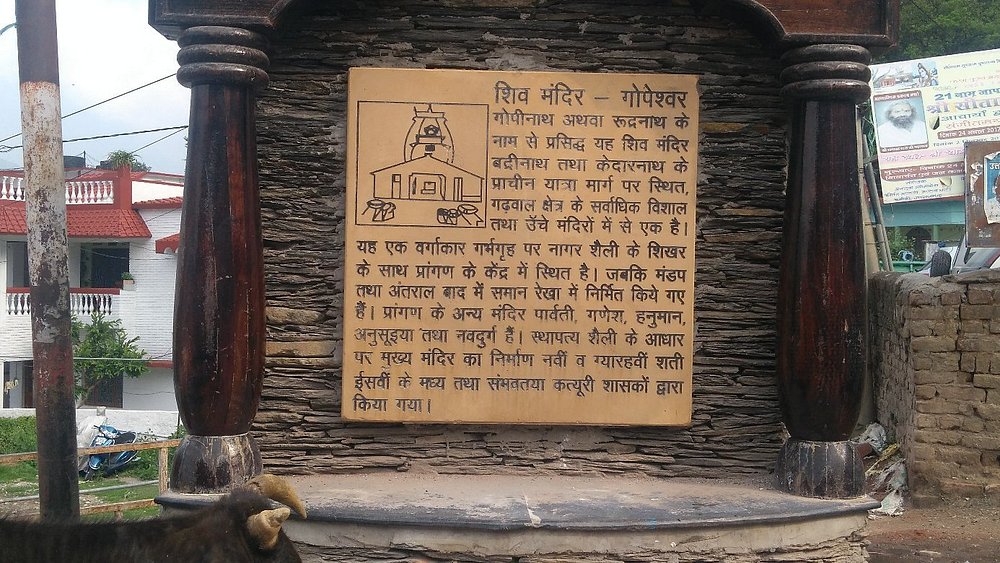 शिव मंदिर – गोपेश्वर
गोपीनाथ अथवा रूद्रनाथ के
नाम से प्रसिद्ध यह शिव मंदिर
बद्रीनाथ तथा केदारनाथ के
प्राचीन यात्रा मार्ग पर स्थित,
गढ़वाल क्षेत्र के सर्वाधिक विशाल
तथा उँचे मंदिरों में से एक है।
यह एक वर्गाकार गर्भगृह पर नागर शैली के शिखर
के साथ प्रांगण के केंद्र में स्थित है। जबकि मंडप
तथा अंतराल बाद में समान रेखा में निर्मित किये गए
हैं। प्रांगण के अन्य मंदिर पार्वती, गणेश, हनुमान,
अनुसूइया तथा नवदुर्ग हैं। स्थापत्य शैली के आधार
पर मुख्य मंदिर का निर्माण नवीं व ग्यारहवीं शती
ईसवीं के मध्य तथा संभवतया कत्यूरी शासकों द्वारा
किया गया।